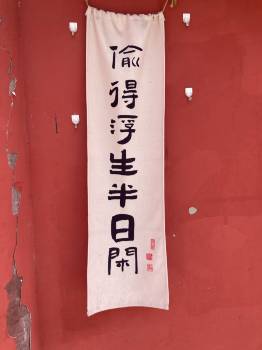 偷得浮生半日閑